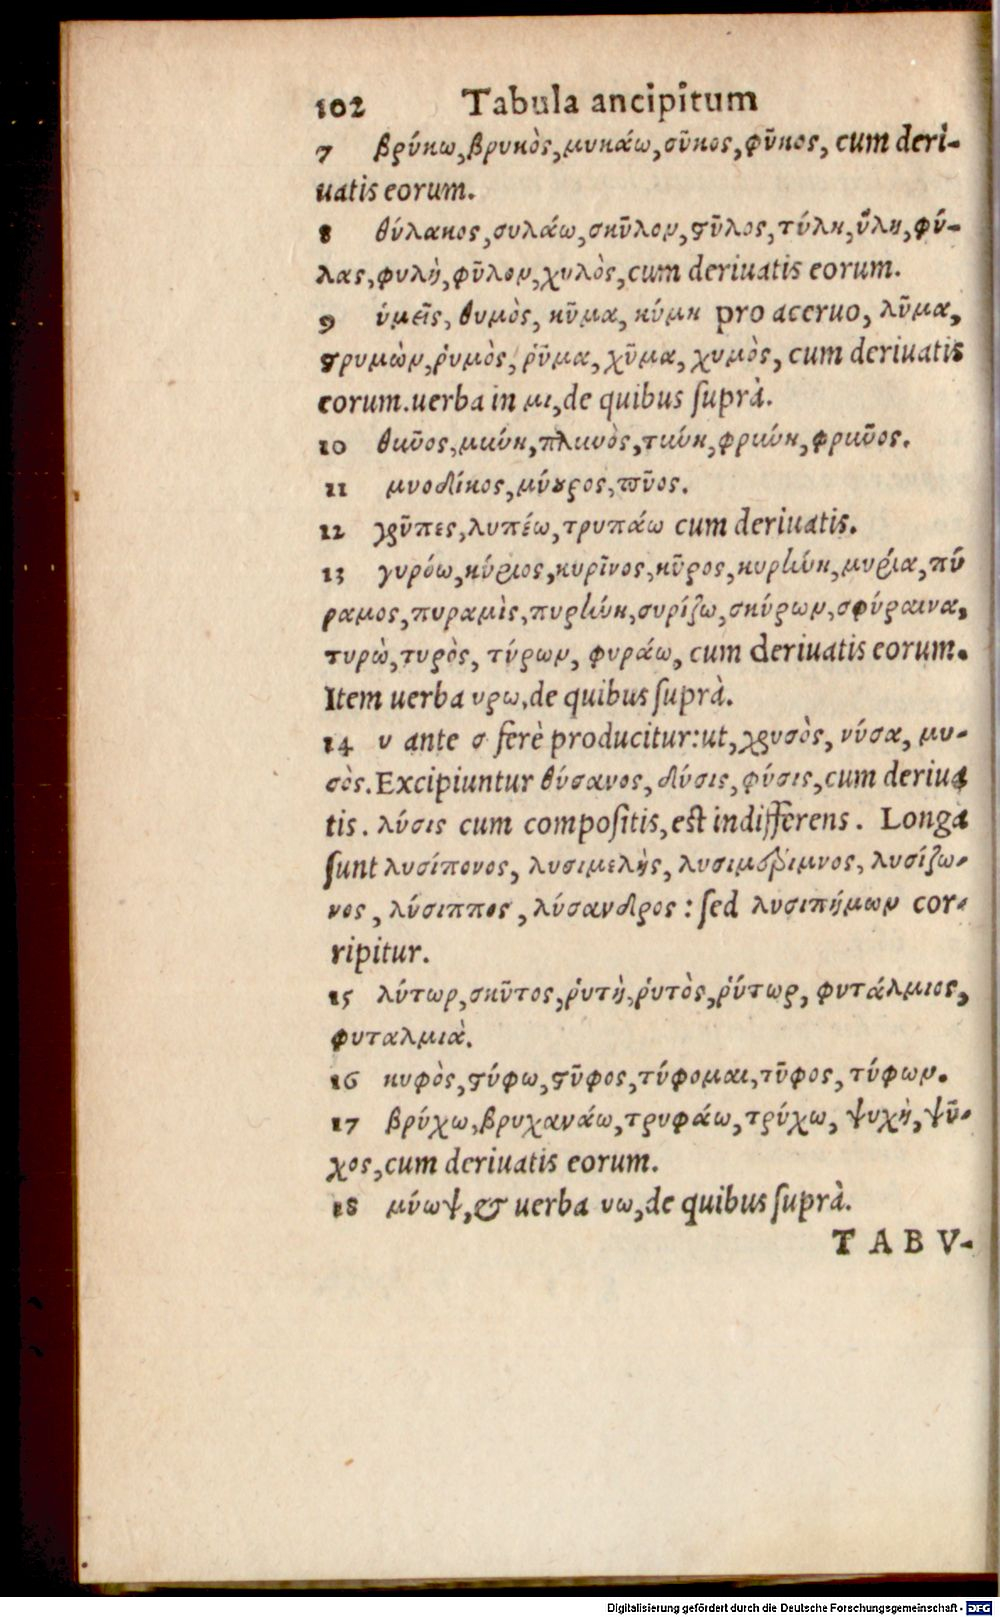 102 Tabula ancipitum
7 βρύκω, βρυκὸς, μυκάω, σῦκος, φῦκος, cum deri-
uatis eorum.
8 θύλακος, συλάω, σκῦλον, στῦλος, τύλη, ὕλη, φύ-
λας, φυλὴ, φῦλον, χυλὸς, cum deriuatis eorum.
9 ὑμεῖς, θυμὸς, κῦμα, κύμη pro aceruo, λῦμα,
στρυμὼν, ῥυμὸς, ῥῦμα, χῦμα, χυμὸς, cum deriuatis
eorum. uerba in μι, de quibus suprà.
10
11 μυοδίκος, μύουρος,
12 γρῦπες, λυπέω, τρυπάω cum deriuatis.
13 γυρόω, κύριος, κυρῖνος, κῦρος, κυρήνη, μυρία, πύ
ραμος, πυραμὶς, πυρήνη, συρίζω, σκύρων, σφύραινα,
τυρὼ, τυρὸς, τύρων, φυράω, cum deriuatis eorum.
Item uerba υρω, de quibus suprà.
14 υ ante σ ferè producitur: ut, χρυσὸς, νύσα, μυ-
σὸς. Excipiuntur θύσανος, δύσις, φύσις, cum deriua
tis. λύσις cum compositis, est indifferens. Longa
sunt λυσίπονος, λυσιμελὴς, λυσιμέριμνος, λυσίζω-
νος, λύσιππος, λύσανδρος: sed λυσιπήμων cor-
ripitur.
15 λύτωρ, σκῦτος, ῥυτὴ, ῥυτὸς, ῥύτωρ, φυτάλμιος,
φυταλμιὰ.
16 κυφὸς, στύφω, στῦφος, τύφομαι, τῦφος, τύφων.
17 βρύχω, βρυχανάω, τρυφάω, τρύχω, ψυχὴ, ψῦ-
χος, cum deriuatis eorum.
18 μύωψ, & uerba υω, de quibus suprà.
TABV-
Digitalisierung gefördert durch die Deutsche Forschungsgemeinschaft - DFG